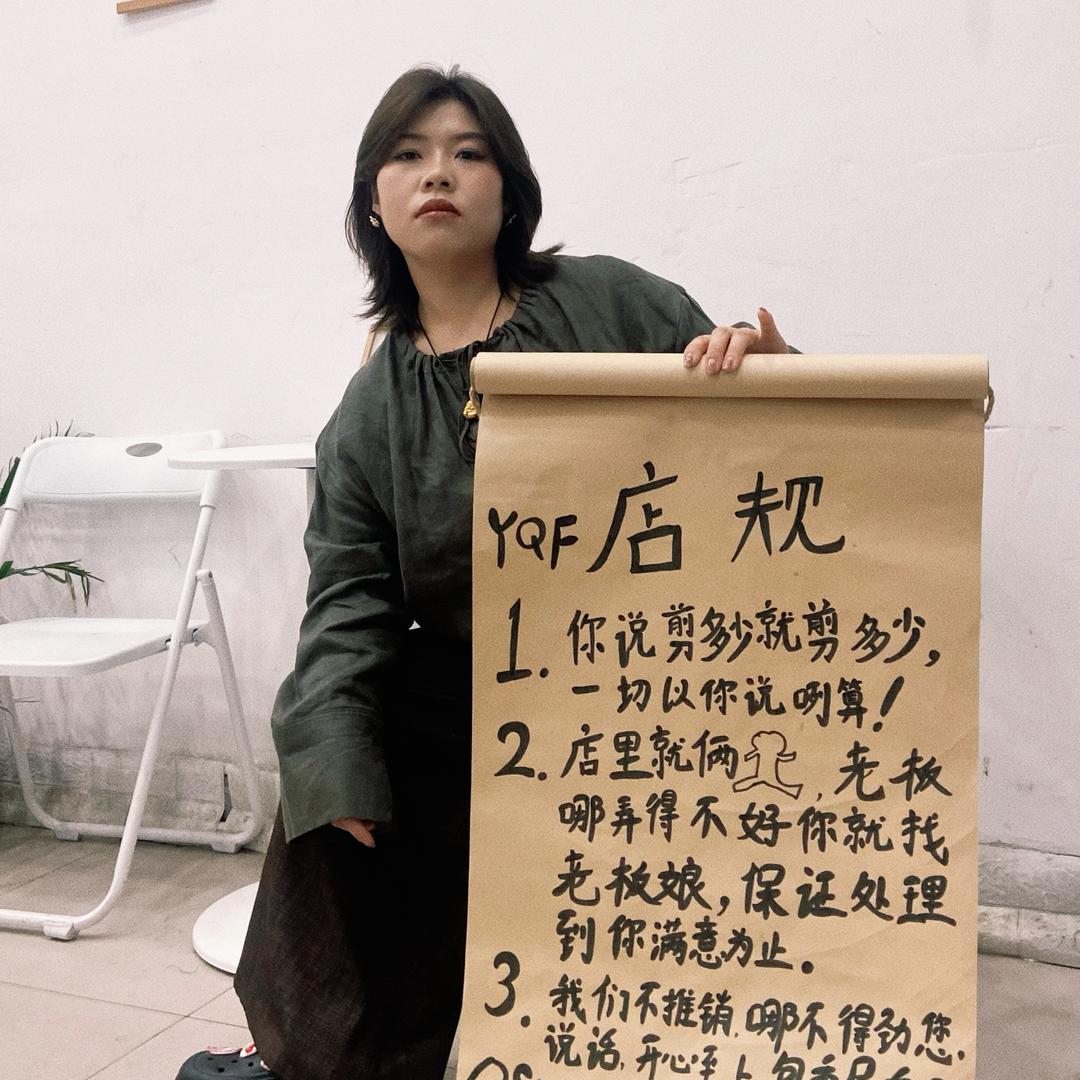 YQF 店 规
1. 你说剪多少就剪多少,
一切以你说咧算!
2. 店里就俩 , 老板
哪弄得不好你就找
老板娘,保证处理
到你满意为止。
3. 我们不推销.哪不得劲您.
说话.开心至上